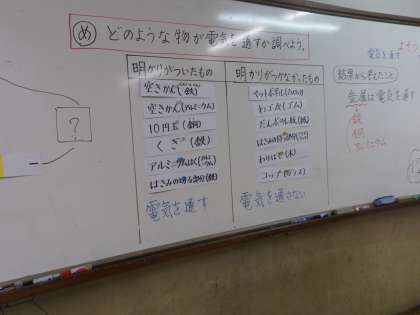 め どのような物が電気を通すか調べよう。
明かりがついたもの
空きかん(鉄)
空きかん(アルミニウム)
10円玉(銅)
くぎ(鉄)
アルミニウムはく(アルミニウム)
はさみの切る部分(鉄)
電気を通す
明かりがつかなかったもの
ペットボトル(プラスチック)
わゴム(ゴム)
だんボール紙(紙)
はさみの持つ部分(プラスチック)
わりばし(木)
コップ(ガラス)
電気を通さない
?
電気を通す
結果から考えたこと
金属は電気を通す
鉄
銅
アルミニウム